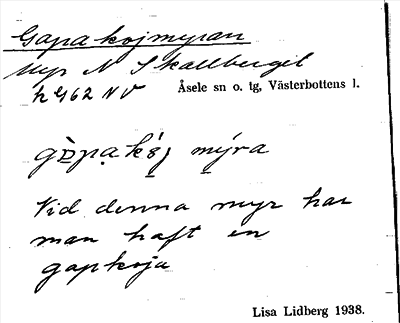 Gapakojmyran
Myr N Skallberget
h G62 NV
Åsele sn o. tg, Västerbottens l.
gɒ̀pa kɵ́j mýra
Vid denna myr har
man haft en
gapkoja
Lisa Lidberg 1938.